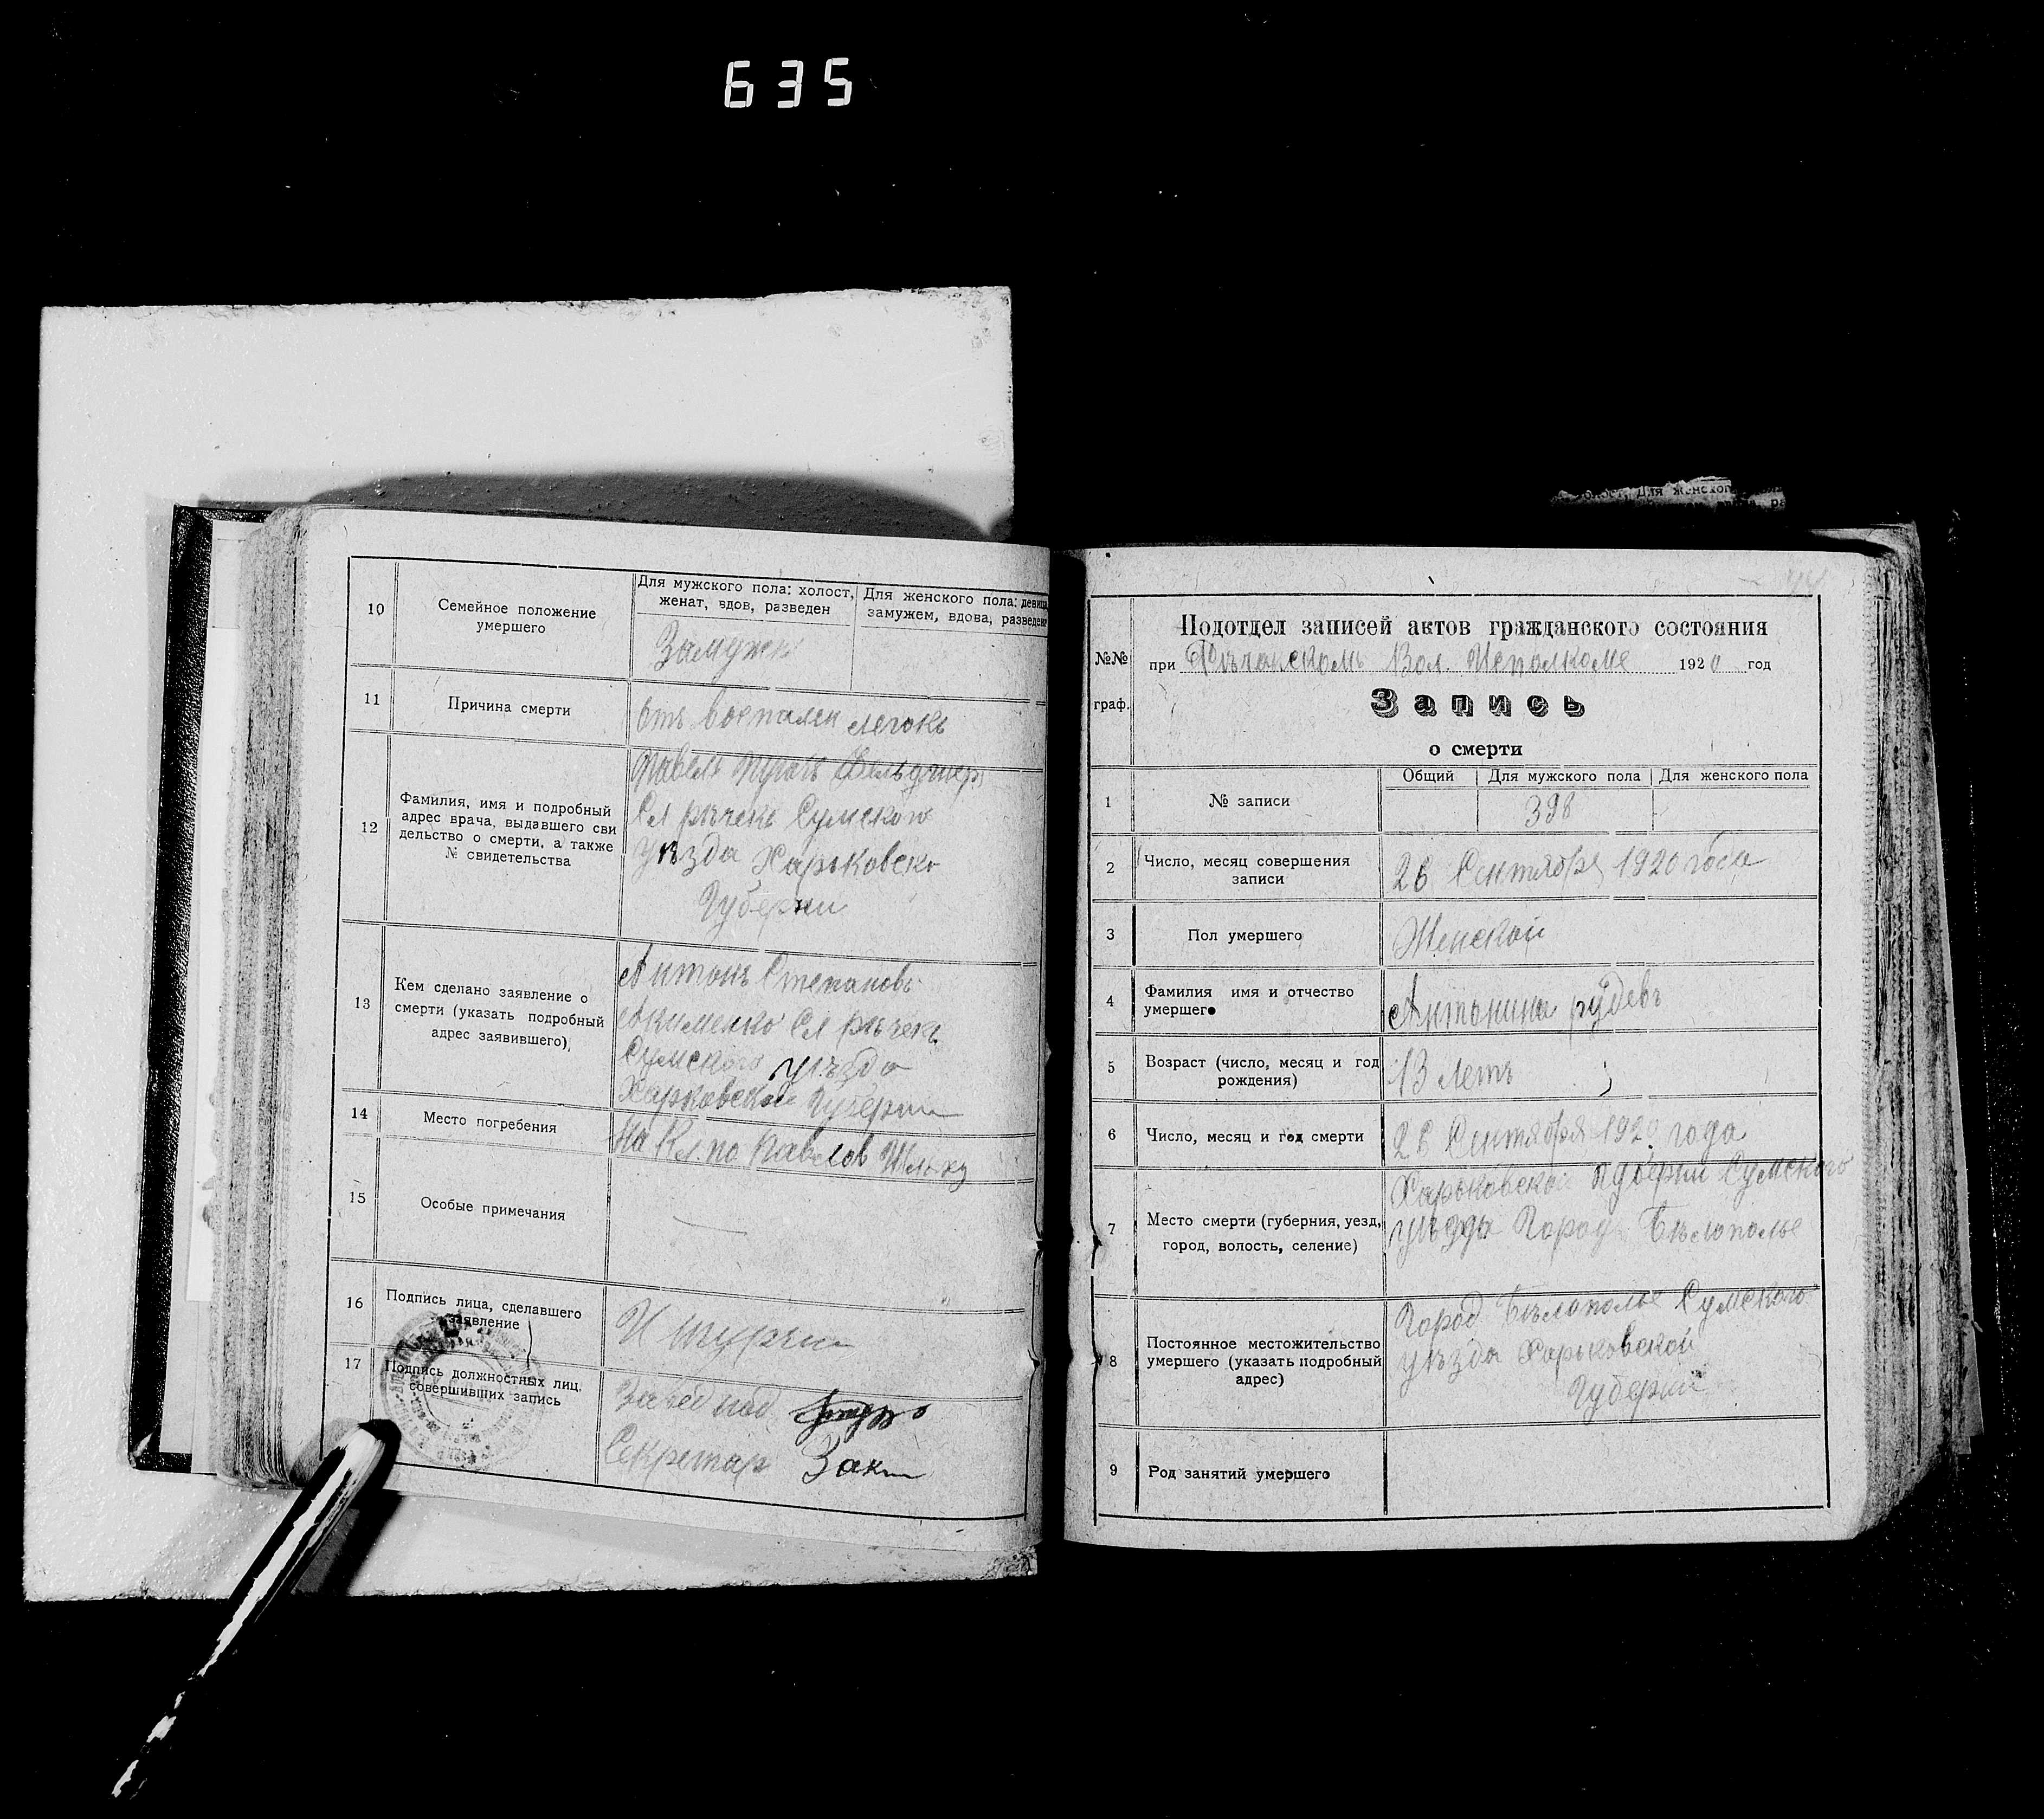 635
10
Семейное положение
умершего
Для мужского пола: холост,
женат, вдов, разведен
Для женского пола: девица,
замужем, вдова, разведен
Замужем
11
Причина смерти
отъ воспален легокъ
12
Фамилия, имя и подробный
адрес врача, выдавшего сви
дельство о смерти, а также
№ свидетельства
Павелъ Фельдшер
Сл рѣчекъ Сумского
уѣзда Харьковско
Губерни
13
Кем сделано заявление о
смерти (указать подробный
адрес заявившего)
Антонъ Степановъ
Акименко Сл рѣчекъ
Сумского уѣзда
Харковской Губерни
14
Место погребения
На Кл. по Павлов
15
Особые примечания
—
16
Подпись лица, сделавшего
заявление
17
Подпись должностных лиц,
совершивших запись
Завед под
Секретар
№№
граф.
Подотдел записей актов гражданского состояния
при Рѣчанскомъ Вол. Исполкоме 1920 год
Запись
о смерти
1
№ записи
Общий
Для мужского пола
Для женского пола
398
2
Число, месяц совершения
записи
26 Сентября 1920 года
3
Пол умершего
Женской
4
Фамилия имя и отчество
умершего
Антонина рудевъ
5
Возраст (число, месяц и год
рождения)
13 летъ
6
Число, месяц и год смерти
26 Сентября 1920 года
7
Место смерти (губерния, уезд,
город, волость, селение)
Харьковской Губерни Сумского
уѣзда Город Бѣлополье
8
Постоянное местожительство
умершего (указать подробный
адрес)
Город Бѣлополье Сумского
уѣзда Харьковской
Губерни
9
Род занятий умершего